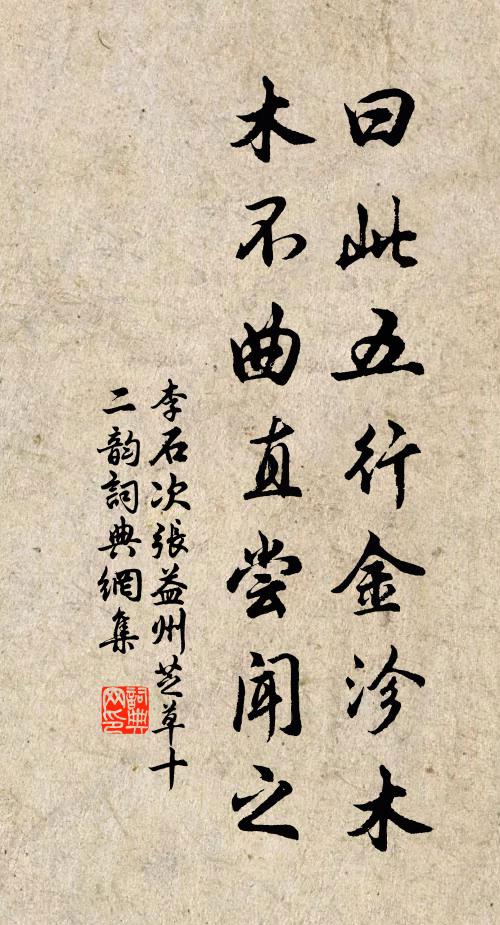 曰此五行金沴木
木不曲直尝闻之
李石次張益州芝草十
二韵詞典網集
詞典网印